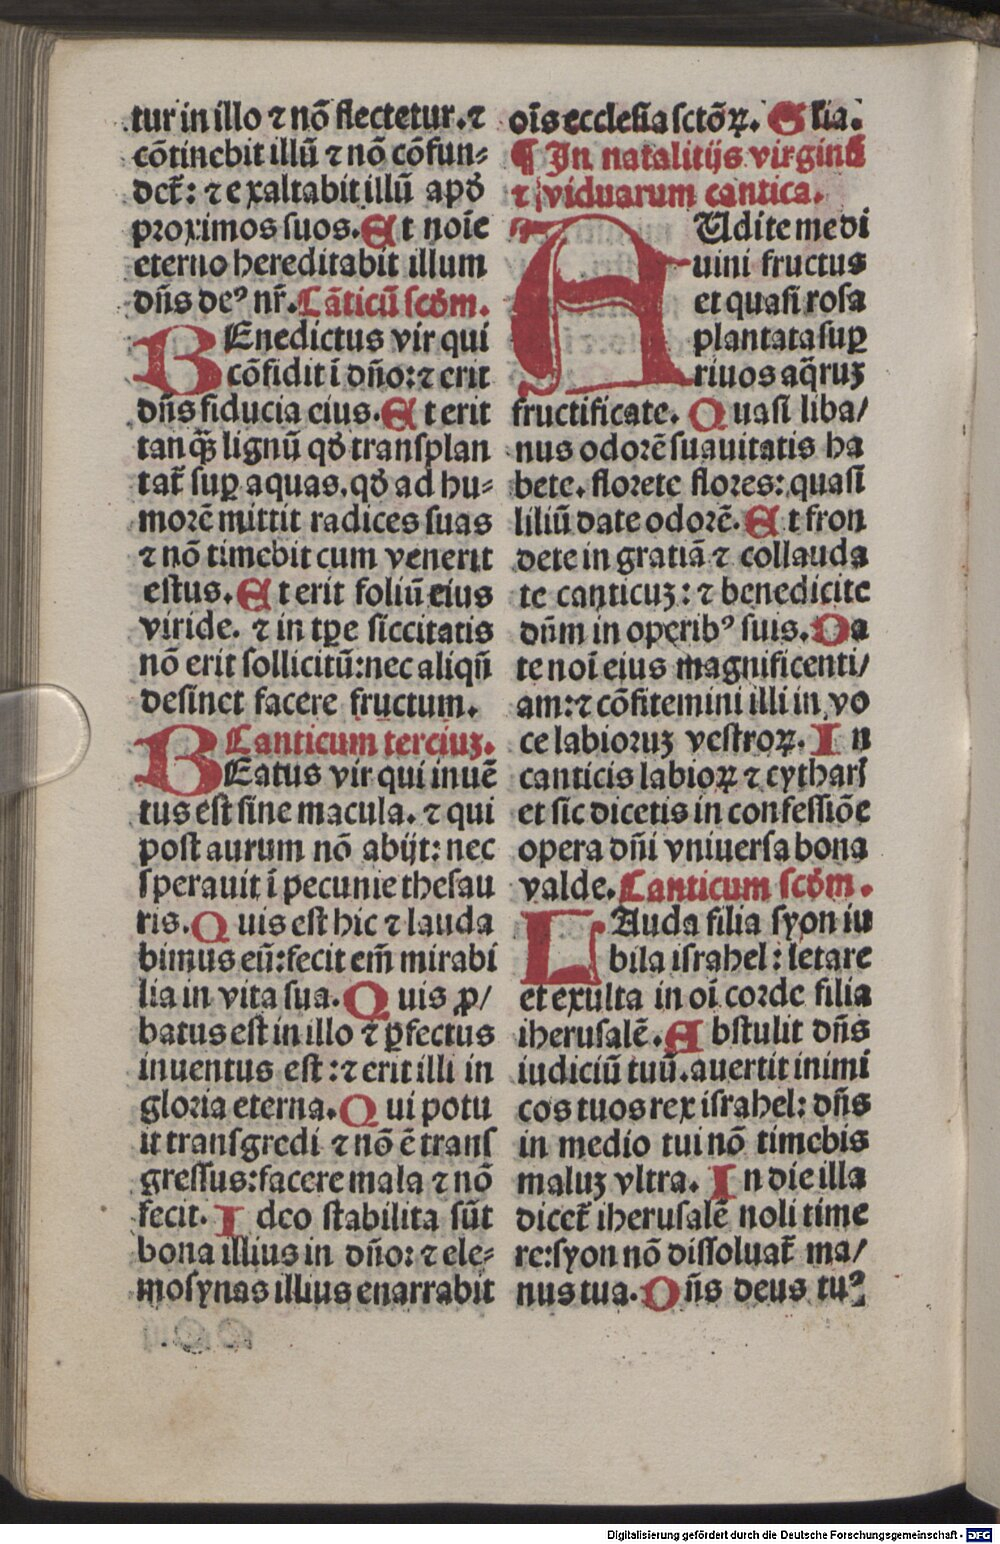 tur in illo ⁊ nō flectetur. ⁊
cōtinebit illū ⁊ nō cōfun⸗
det᷑: ⁊ exaltabit illū apđ
proximos suos. Et noīe
eterno hereditabit illum
dn̄s deꝰ nr̄. Cāticū scđm.
BEnedictus vir qui
cōfidit ī dn̄o: ⁊ erit
dn̄s fiducia eius. Et erit
tanq̄ꝫ lignū qđ transplan
tat᷑ suꝑ aquas. qđ ad hu⸗
morē mittit radices suas
⁊ nō timebit cum venerit
estus. Et erit foliū eius
viride. ⁊ in tꝑe siccitatis
nō erit sollicitū: nec aliqn̄
desinet facere fructum.
Canticum terciuꝫ.
BEatus vir qui inuē
tus est sine macula. ⁊ qui
post aurum nō abijt: nec
sperauit ī pecunie thesau
ris. Quis est hic ⁊ lauda
bimus eū: fecit em̄ mirabi
lia in vita sua. Quis ꝓ/
batus est in illo ⁊ ꝑfectus
inuentus est: ⁊ erit illi in
gloria eterna. Qui potu
it transgredi ⁊ nō ē trans
gressus: facere mala ⁊ nō
fecit. Ideo stabilita sūt
bona illius in dn̄o: ⁊ ele⸗
mosynas illius enarrabit
oīs ecclesia sctōꝝ. Glia.
¶ In natalitijs virginū
⁊ viduarum cantica.
AUdite me di
uini fructus
et quasi rosa
plantata suꝑ
riuos aq̄ruꝫ
fructificate. Quasi liba/
nus odorē suauitatis ha
bete. florete flores: quasi
liliū date odorē. Et fron
dete in gratiā ⁊ collauda
te canticuꝫ: ⁊ benedicite
dn̄m in operibꝰ suis. Da
te noī eius magnificenti/
am: ⁊ cōfitemini illi in vo
ce labioruꝫ vestroꝝ. In
canticis labioꝝ ⁊ cytharꝭ
et sic dicetis in confessiōe
opera dn̄i vniuersa bona
valde. Canticum scđm.
LAuda filia syon iu
bila israhel: letare
et exulta in oī corde filia
iherusalē. Abstulit dn̄s
iudiciū tuū. auertit inimi
cos tuos rex israhel: dn̄s
in medio tui nō timebis
maluꝫ vltra. In die illa
dicet᷑ iherusalē noli time
re: syon nō dissoluat᷑ ma/
nus tua. Dn̄s deus tuꝰ
Digitalisierung gefördert durch die Deutsche Forschungsgemeinschaft - DFG